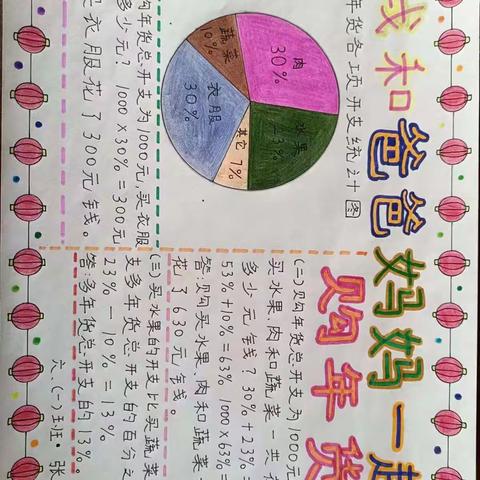 我和爸爸妈妈一起
购年货
年货各项开支统计图
肉
30%
水果
23%
其它
7%
衣服
30%
蔬菜
10%
购年货总开支为1000元,买衣服
多少元? 1000×30%=300元
买衣服花了300元钱。
(二)购年货总开支为1000元
买水果、肉和蔬菜一共
多少元钱?30%+23%=
53%+10%=63% 1000×63%=
答:购买水果、肉和蔬菜
花了630元钱。
(三)买水果的开支比买蔬菜
支多年货总开支的百分之
23%-10%=13%。
答:多年货总开支的13%。
六、(一)班·张